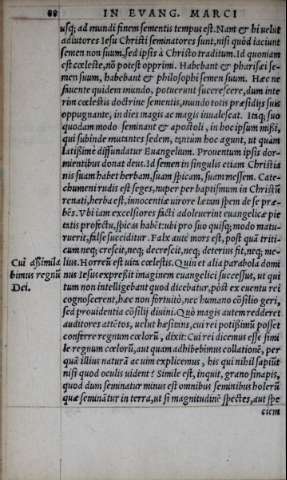 88 IN EVANG. MARCI
usq; ad mundi finem sementis tempus est. Nam & hi uelut
adiutores Iesu Christi seminatores sunt, nisi quòd iaciunt
semen non suum, sed ipsis à Christo traditum. Id quoniam
est cœleste, nō potest opprimi. Habebant & pharisæi se-
men suum, habebant & philosophi semen suum. Hæc ne
fauente quidem mundo, potuerunt succrescere, dum inte
rim cœlestis doctrinæ sementis, mundo totis præsidijs suis
oppugnante, in dies magis ac magis inualescat. Itaq; suo
quodam modo seminant & apostoli, in hoc ipsum missi,
qui subinde mutantes sedem, tantum hoc agunt, ut quàm
latissime diffundatur Euangelium. Prouentum ipsis dor-
mientibus donat deus. Id semen in singulis etiam Christia
nis suam habet herbam, suam spicam, suam messem. Cate-
chumeni rudis est seges, nuper per baptismum in Christū
renati, herba est, innocentiæ uirore lætam spem de se præ-
bēs. Vbi iam excelsiores facti adoleuerint euangelicæ pie
tatis profectu, spicas habēt: ubi pro suo quisq; modo matu-
ruerit, false succiditur. Falx autē mors est, post quā triti-
cum neq; crescit, neq; decrescit, neq; deterius fit, neq; me-
Cui assimila lius. Horreū est uita cœlestis. Quin et alia parabola domi
bimus regnū nus Iesus expressit imaginem euangelici successus, ut qui
Dei. tum non intelligebant quod dicebatur, pòst ex euentu rei
cognoscerent, hæc non fortuitò, nec humano cōsilio geri,
sed prouidentia cōsilij diuini. Quò magis autem redderet
auditores attētos, uelut hæsitans, cui rei potissimū posset
conferre regnum cœlorū, dixit: Cui rei dicemus esse simi
le regnum cœlorū, aut quam adhibebimus collationē, per
quā illius naturā ac uim explicemus, his qui nihil sapiūt
nisi quod oculis uident? Simile est, inquit, grano sinapis,
quod dum seminatur minus est omnibus seminibus holerū
quæ seminātur in terra, ut si magnitudinē spectes, aut spe
ciem